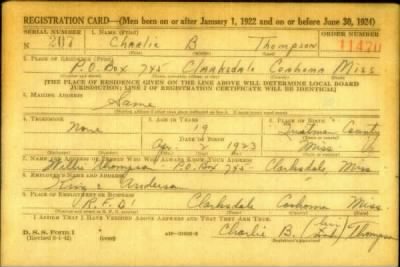 REGISTRATION CARD—(Men born on or after January 1, 1922 and on or before June 30, 1924)
SERIAL NUMBER 1. NAME (Print) ORDER NUMBER
Charlie B Thompson 11470
2. PLACE OF RESIDENCE (Print)
P.O. Box 745 Clarksdale Coahoma Miss
[THE PLACE OF RESIDENCE GIVEN ON THE LINE ABOVE WILL DETERMINE LOCAL BOARD
JURISDICTION; LINE 2 OF REGISTRATION CERTIFICATE WILL BE IDENTICAL]
3. MAILING ADDRESS
Same
4. TELEPHONE 5. AGE IN YEARS 6. PLACE OF BIRTH
None 19 Quitman County
DATE OF BIRTH
Apr 2 1923 Miss
7. NAME AND ADDRESS OF PERSON WHO WILL ALWAYS KNOW YOUR ADDRESS
Willie Thompson P.O. Box 745 Clarksdale Miss
8. EMPLOYER'S NAME AND ADDRESS
King & Anderson
9. PLACE OF EMPLOYMENT OR BUSINESS
R.F.D. Clarksdale Coahoma Miss.
I AFFIRM THAT I HAVE VERIFIED ABOVE ANSWERS AND THAT THEY ARE TRUE.
D. S. S. Form 1
Charlie B. Thompson